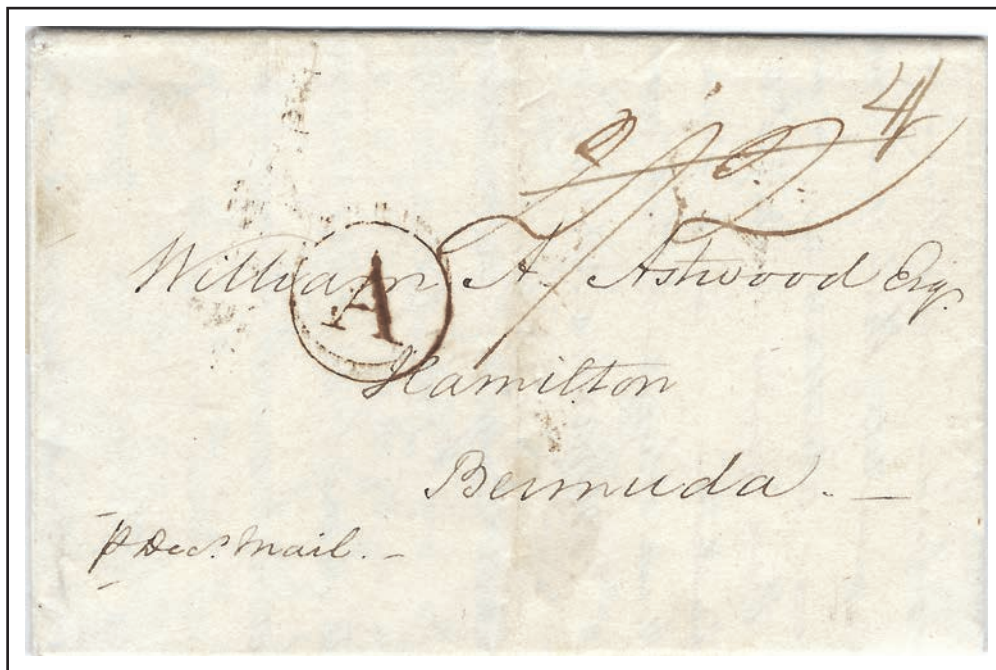 2/2 4
William A. Astwood Esqr.
A
Hamilton
Bermuda. —
p Decr. Mail. —